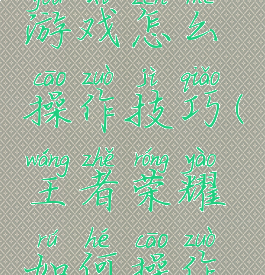 yóu xì zěn me
游戏怎么
cāo zuò jì qiǎo
操作技巧(
wáng zhě róng yào
王者荣耀
rú hé cāo zuò
如何操作